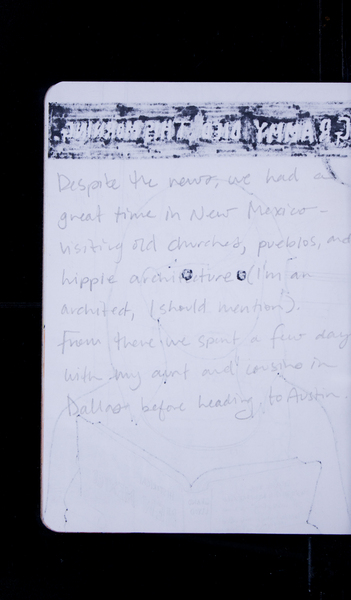 Despite the news, we had a
great time in New Mexico –
visiting old churches, pueblos, and
hippie architecture (I'm an
architect, I should mention).
From there we spent a few day
with my aunt and cousins in
Dallas before heading to Austin.